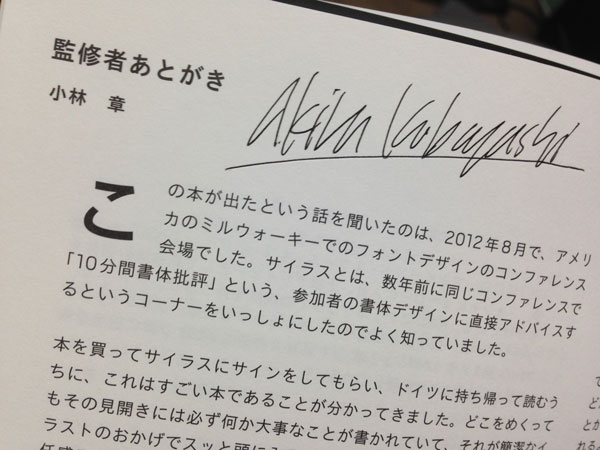 監修者あとがき
小林　章
Akira Kobayashi
この本が出たという話を聞いたのは、2012年8月で、アメリ
カのミルウォーキーでのフォントデザインのコンファレンス
会場でした。サイラスとは、数年前に同じコンファレンスで
「10分間書体批評」という、参加者の書体デザインに直接アドバイスす
るというコーナーをいっしょにしたのでよく知っていました。
本を買ってサイラスにサインをしてもらい、ドイツに持ち帰って読むう
ちに、これはすごい本であることが分かってきました。どこをめくって
もその見開きには必ず何か大事なことが書かれていて、それが簡潔なイ
ラストのおかげでスッと頭に